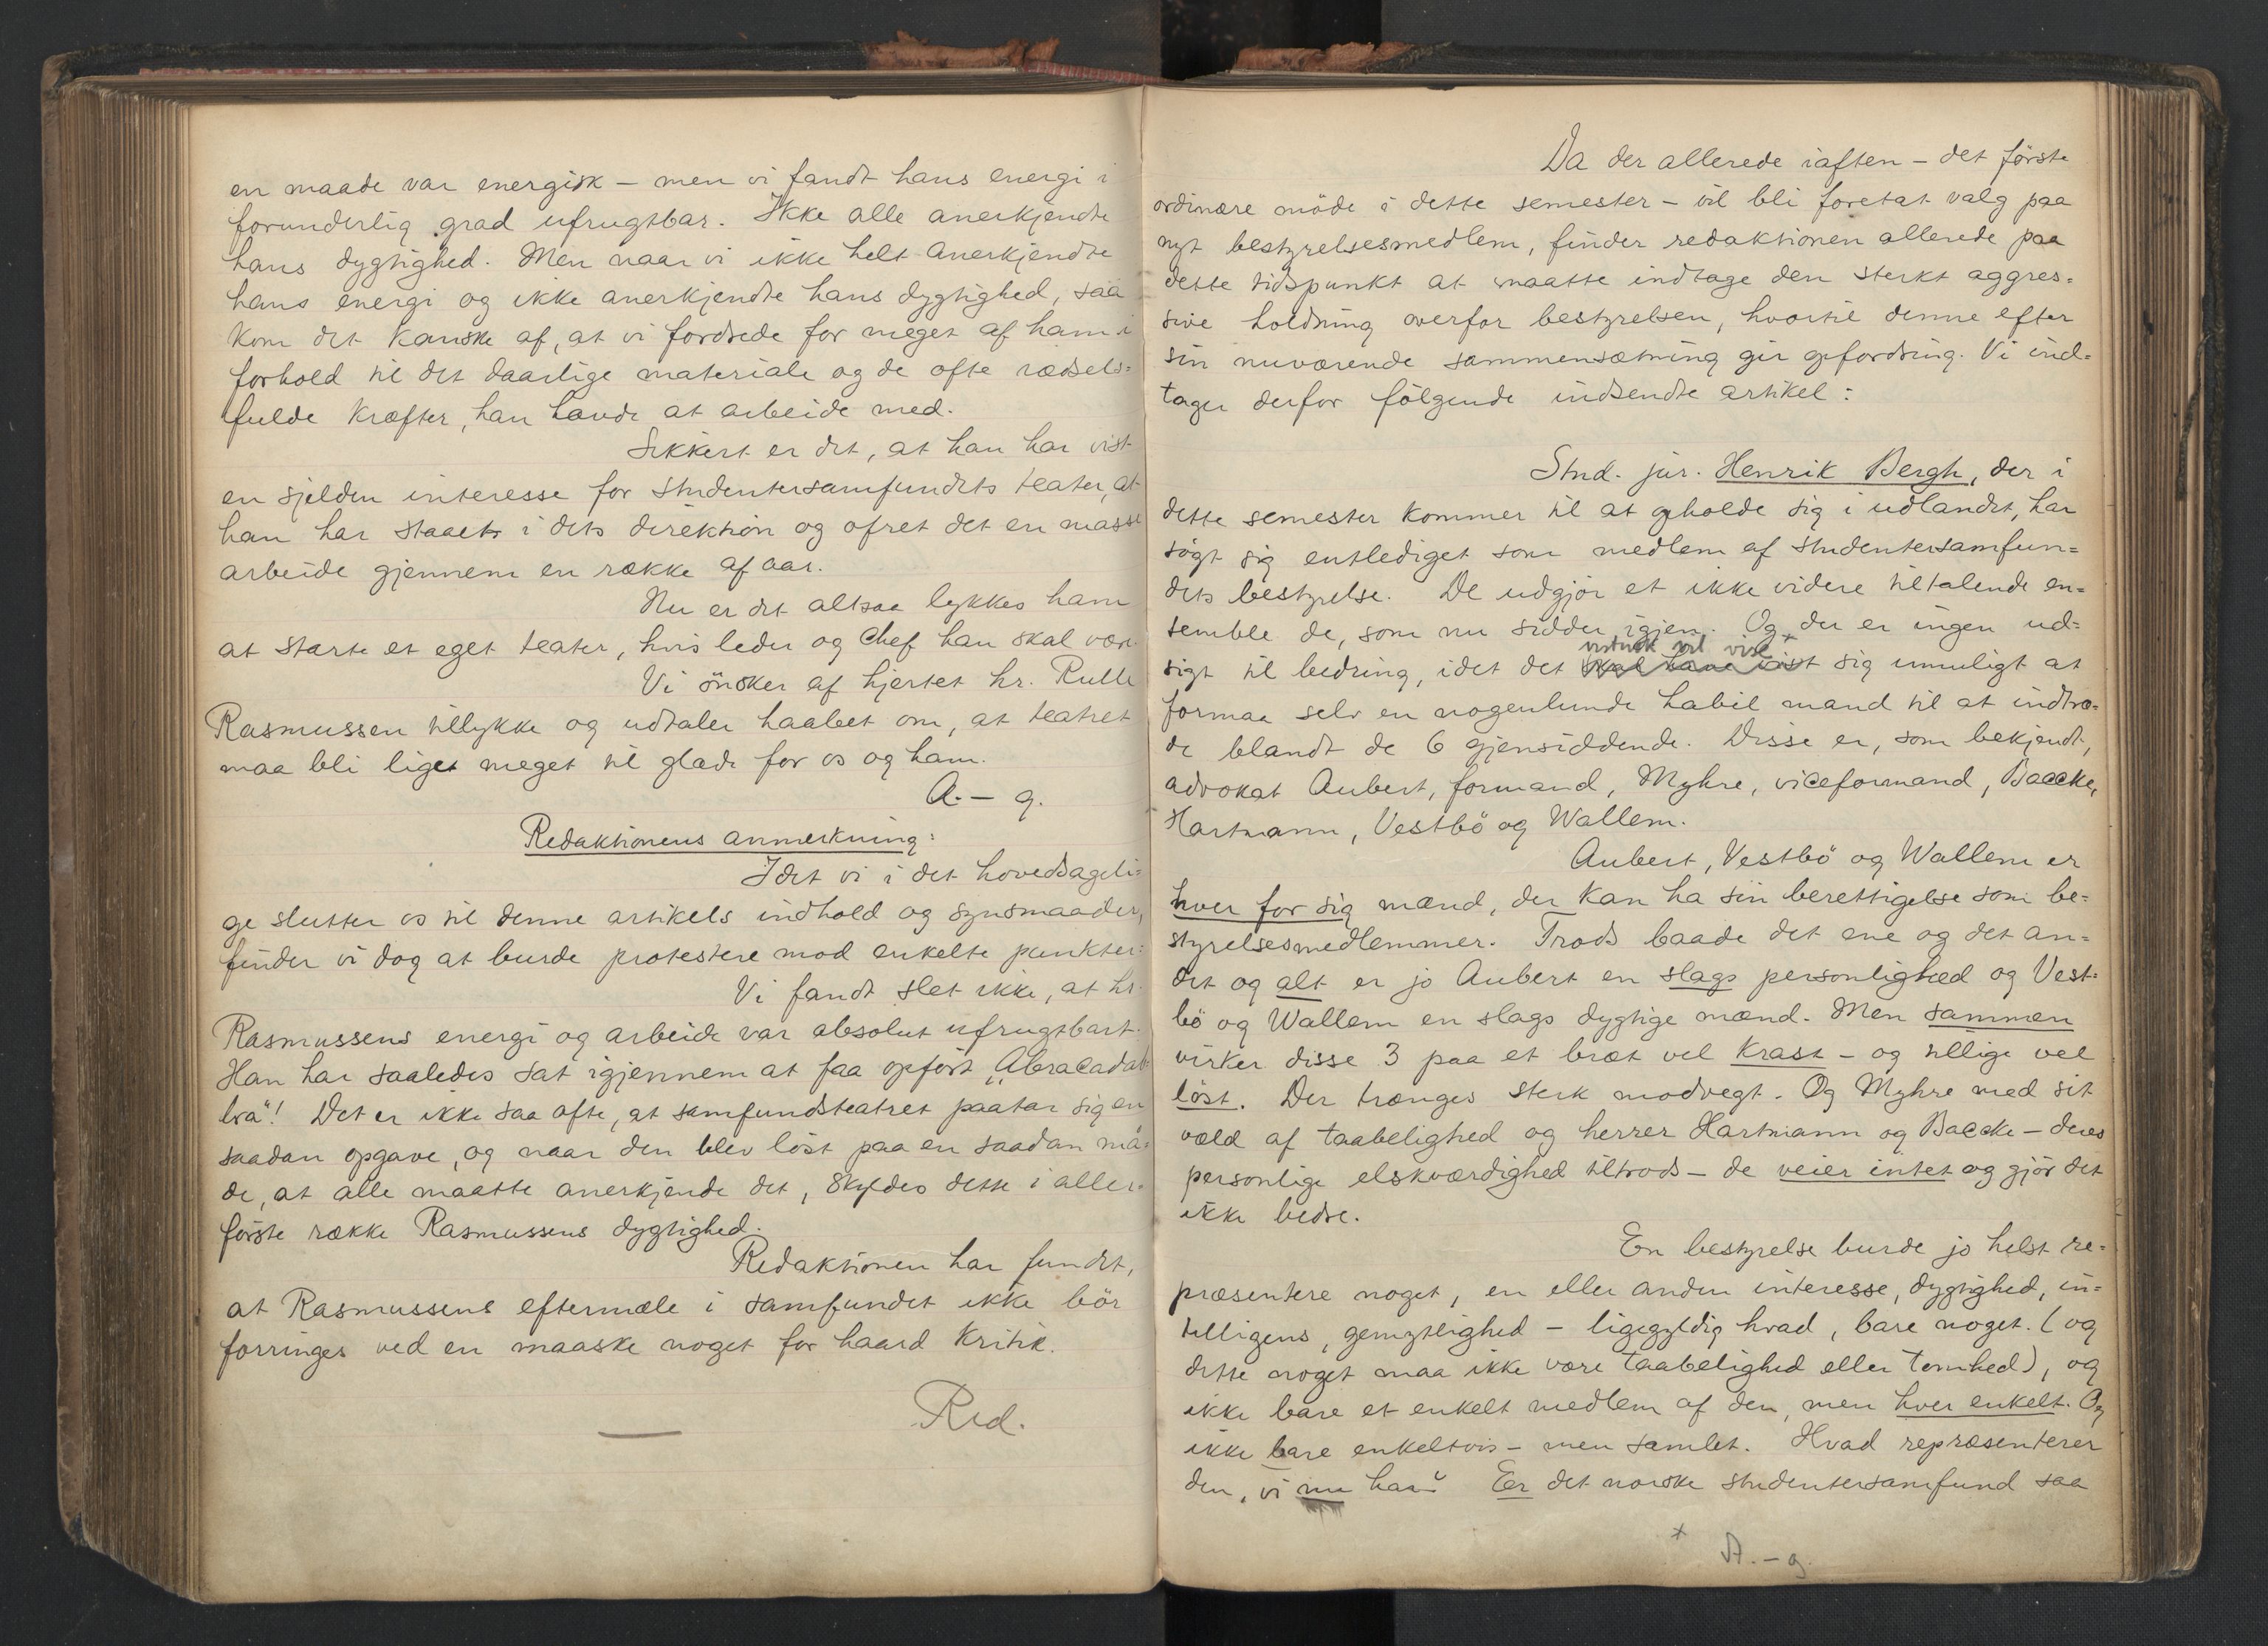 en maade var energisk – men vi fandt hans energi i
forunderlig grad ufrugtbar. Ikke alle anerkjendte
hans dygtighed. Men naar vi ikke helt anerkjendte
hans energi og ikke anerkjendte hans dygtighed, saa
kom det kanske af, at vi fordrede for meget af ham i
forhold til det daarlige materiale og de ofte rædsels=
fulde kræfter, han havde at arbeide med.
Sikkert er det, at han har vist
en sjelden interesse for studentersamfundets teater, at
han har staaet i dets direktion og ofret det en masse
arbeide gjennem en række af aar.
Nu er det altsaa lykkes ham
at starte et eget teater, hvis leder og chef han skal være.
Vi ønsker af hjertet hr. Rulle
Rasmussen tillykke og udtaler haabet om, at teatret
maa bli liget meget til glæde for os og ham.
A. – g.
Redaktionens anmerkning:
Idet vi i det hovedsageli=
ge slutter os til denne artikels indhold og synsmaader,
finder vi dog at burde protestere mod enkelte punkter:
Vi fandt slet ikke, at hr.
Rasmussens energi og arbeide var absolut ufrugtbart.
Han har saaledes sat igjennem at faa opført „Abracadab=
bra“! Det er ikke saa ofte, at samfundsteatret paatar sig en
saadan opgave, og naar den blev løst paa en saadan må=
de, at alle maatte anerkjende det, skyldes dette i aller=
første række Rasmussens dygtighed.
Redaktionen har fundet,
at Rasmussens eftermæle i samfundet ikke bør
forringes ved en maaske noget for haard kritik.
Red.
Da der allerede iaften – det første
ordinære møde i dette semester – vil bli foretat valg paa
nyt bestyrelsesmedlem, finder redaktionen allerede paa
dette tidspunkt at maatte indtage den sterkt aggres=
sive holdning overfor bestyrelsen, hvortil denne efter
sin nuværende sammensætning gir opfordring. Vi ind=
tager derfor følgende indsendte artikel:
Stud. jur. Henrik Bergh, der i
dette semester kommer til at opholde sig i udlandet, har
søgt sig entlediget som medlem af studentersamfun=
dets bestyrelse. De udgjør et ikke videre tiltalende en=
semble de, som nu sidder igjen. Og der er ingen ud=
vistnok vil vise +
sigt til bedring, idet det skal have vist sig umuligt at
formaa selv en nogenlunde habil mand til at indtræ=
de blandt de 6 gjensiddende. Disse er, som bekjendt,
advokat Aubert, formand, Myhre, viceformand, Baccke,
Hartmann, Vestbö og Wallem.
Aubert, Vestbö og Wallem er
hver for sig mænd, der kan ha sin berettigelse som be=
styrelsesmedlemmer. Trods baade det ene og det an=
det og alt er jo Aubert en slags personlighed og Vest=
bö og Wallem en slags dygtige mænd. Men sammen
virker disse 3 paa et bræt vel krast – og tillige vel
løst. Der trænges sterk modvegt. Og Myhre med sit
væld af taabelighed og herrer Hartmann og Baccke – deres
personlige elskværdighed tiltrods – de veier intet og gjør det
ikke bedre.
En bestyrelse burde jo helst re=
præsentere noget, en eller anden interesse, dygtighed, in=
telligens, gemytlighed – ligegyldig hvad, bare noget. (og
dette noget maa ikke være taabelighed eller tomhed), og
ikke bare et enkelt medlem af den, men hver enkelt. Og
ikke bare enkeltvis – men samlet. Hvad repræsenterer
den, vi nu har? Er det norske studentersamfund saa
+ A. – g.